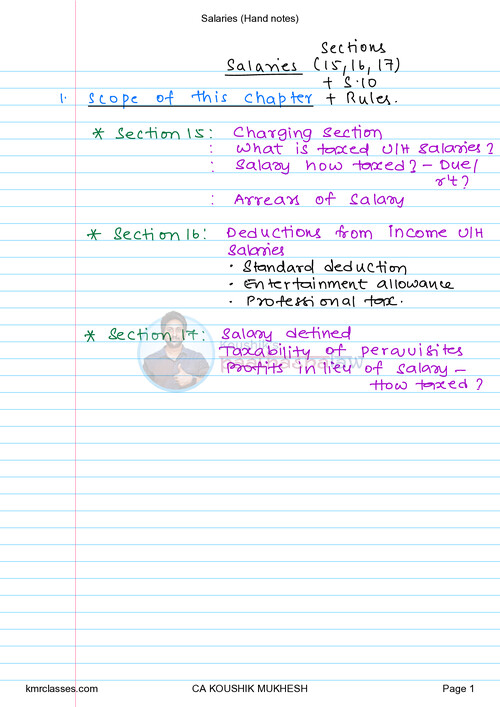 Salaries (Hand notes)
Sections
Salaries (15, 16, 17)
+ S.10
1. Scope of this chapter + Rules.
* Section 15: Charging Section
: What is taxed U/H Salaries?
: Salary how taxed? - Due/
r't?
: Arrears of Salary
* Section 16: Deductions from Income U/H
Salaries
• Standard deduction
• Entertainment allowance
• Professional tax.
* Section 17: Salary defined
Taxability of perquisites
Profits in lieu of Salary -
How taxed?
kmrclasses.com CA KOUSHIK MUKHESH Page 1